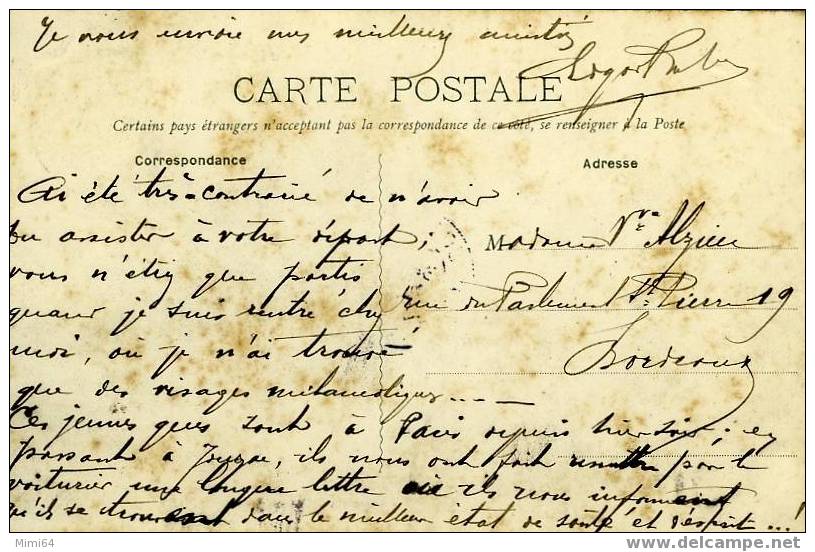 Je vous envoie mes meilleures amitiés
CARTE POSTALE
Certains pays étrangers n'acceptant pas la correspondance de ce côté, se renseigner à la Poste
Correspondance
Ai été très contrarié de n'avoir
pu assister à votre départ ;
vous n'étiez que partis
quand je suis rentré chez
moi, où je n'ai trouvé
que des visages mélancoliques...
Ces jeunes gens sont à Paris depuis hier soir ; en
passant à Jonzac, ils nous ont fait remettre par le
voiturier une longue lettre où ils nous informent
qu'ils se trouvent dans le meilleur état de santé et d'esprit...!
Adresse
Madame Vve Alzieu
rue du Parlement St Pierre 19
Bordeaux
Mimi64
www.delcampe.net